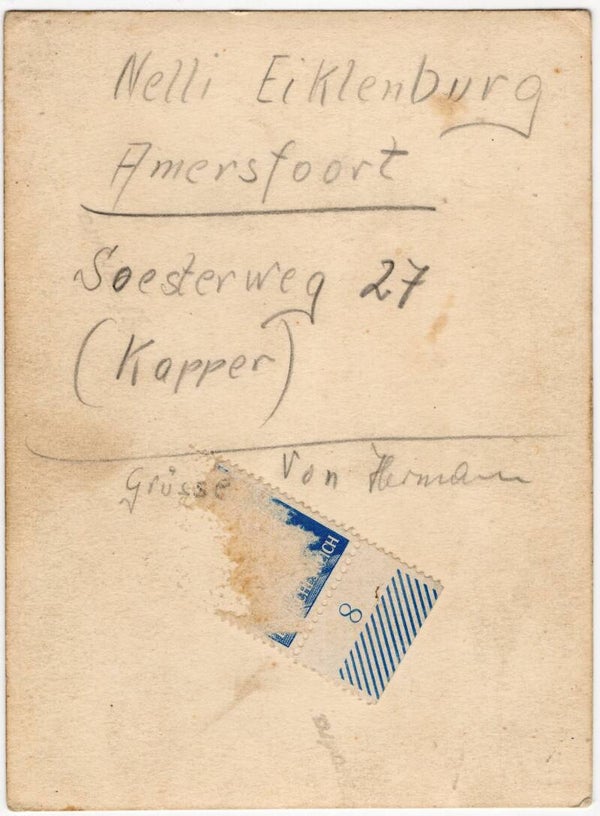 Nelli Eiklenburg
Amersfoort
Soesterweg 27
(Kapper)
Grüsse von Hermann
8